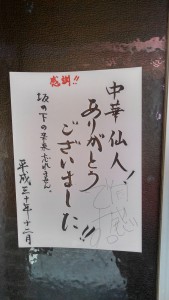 感謝!!
中華仙人!
ありがとう
ございました!!
坂の下の
忘れません。
平成三十年十二月